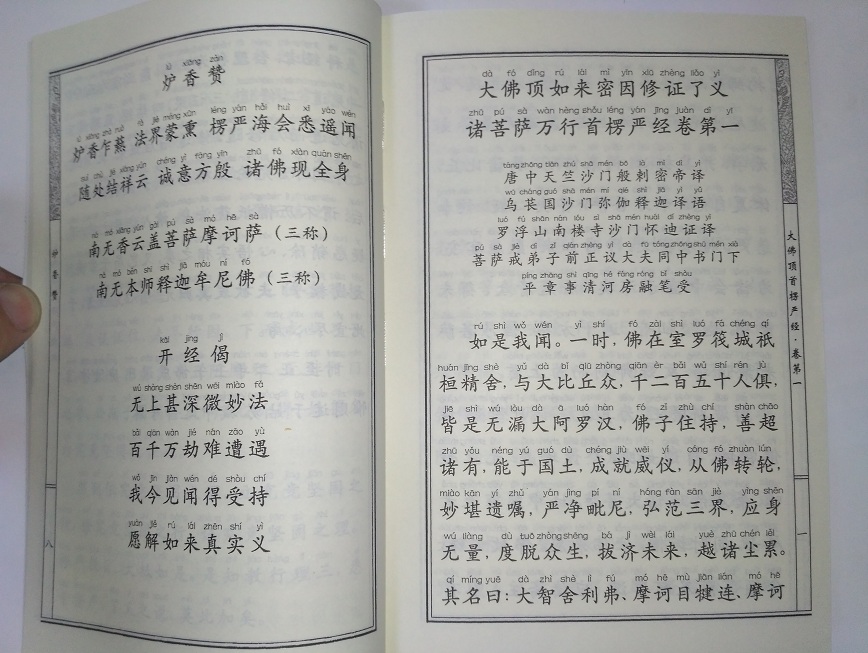 炉香赞
炉香乍爇 法界蒙熏 楞严海会悉遥闻
随处结祥云 诚意方殷 诸佛现全身
南无香云盖菩萨摩诃萨（三称）
南无本师释迦牟尼佛（三称）
开经偈
无上甚深微妙法
百千万劫难遭遇
我今见闻得受持
愿解如来真实义
炉香赞
八
大佛顶如来密因修证了义
诸菩萨万行首楞严经卷第一
唐中天竺沙门般剌密帝译
乌苌国沙门弥伽释迦译语
罗浮山南楼寺沙门怀迪证译
菩萨戒弟子前正议大夫同中书门下
平章事清河房融笔受
如是我闻。一时，佛在室罗筏城祇
桓精舍，与大比丘众，千二百五十人俱，
皆是无漏大阿罗汉，佛子住持，善超
诸有，能于国土，成就威仪，从佛转轮，
妙堪遗嘱，严净毗尼，弘范三界，应身
无量，度脱众生，拔济未来，越诸尘累。
其名曰：大智舍利弗、摩诃目犍连、摩诃
大佛顶首楞严经·卷第一
一